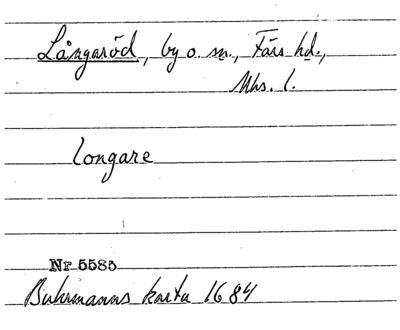 Långaröd, by o. sn., Färs hd.,
Mhs. l.
longare
Nr 5585
Buhrmanns karta 1684